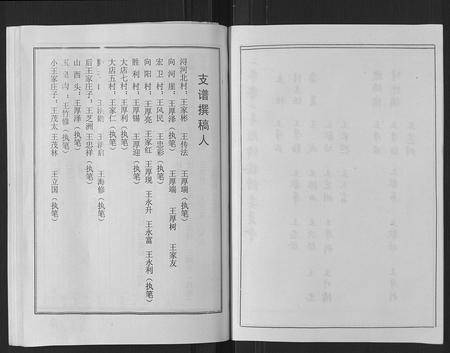 支谱撰稿人
浔河北村：王家彬　王传法　王厚瑞（执笔）
向河崖：王厚泽（执笔）　王厚瑞　王厚树　王家友
宏卫村：王风民　王忠彩（执笔）
向阳村：王厚亮　王家红　王厚现　王永升　王永富　王永利（执笔）
胜利村：王厚锡　王厚迎（执笔）
大店七村：王厚利（执笔）
大店五村：王家仁（执笔）
王海修（执笔）
后王家庄子：王芝洲　王忠祥（执笔）
山西头：王厚泽（执笔）
王竹修（执笔）
小王家庄子：王茂太　王茂林　王立国（执笔）